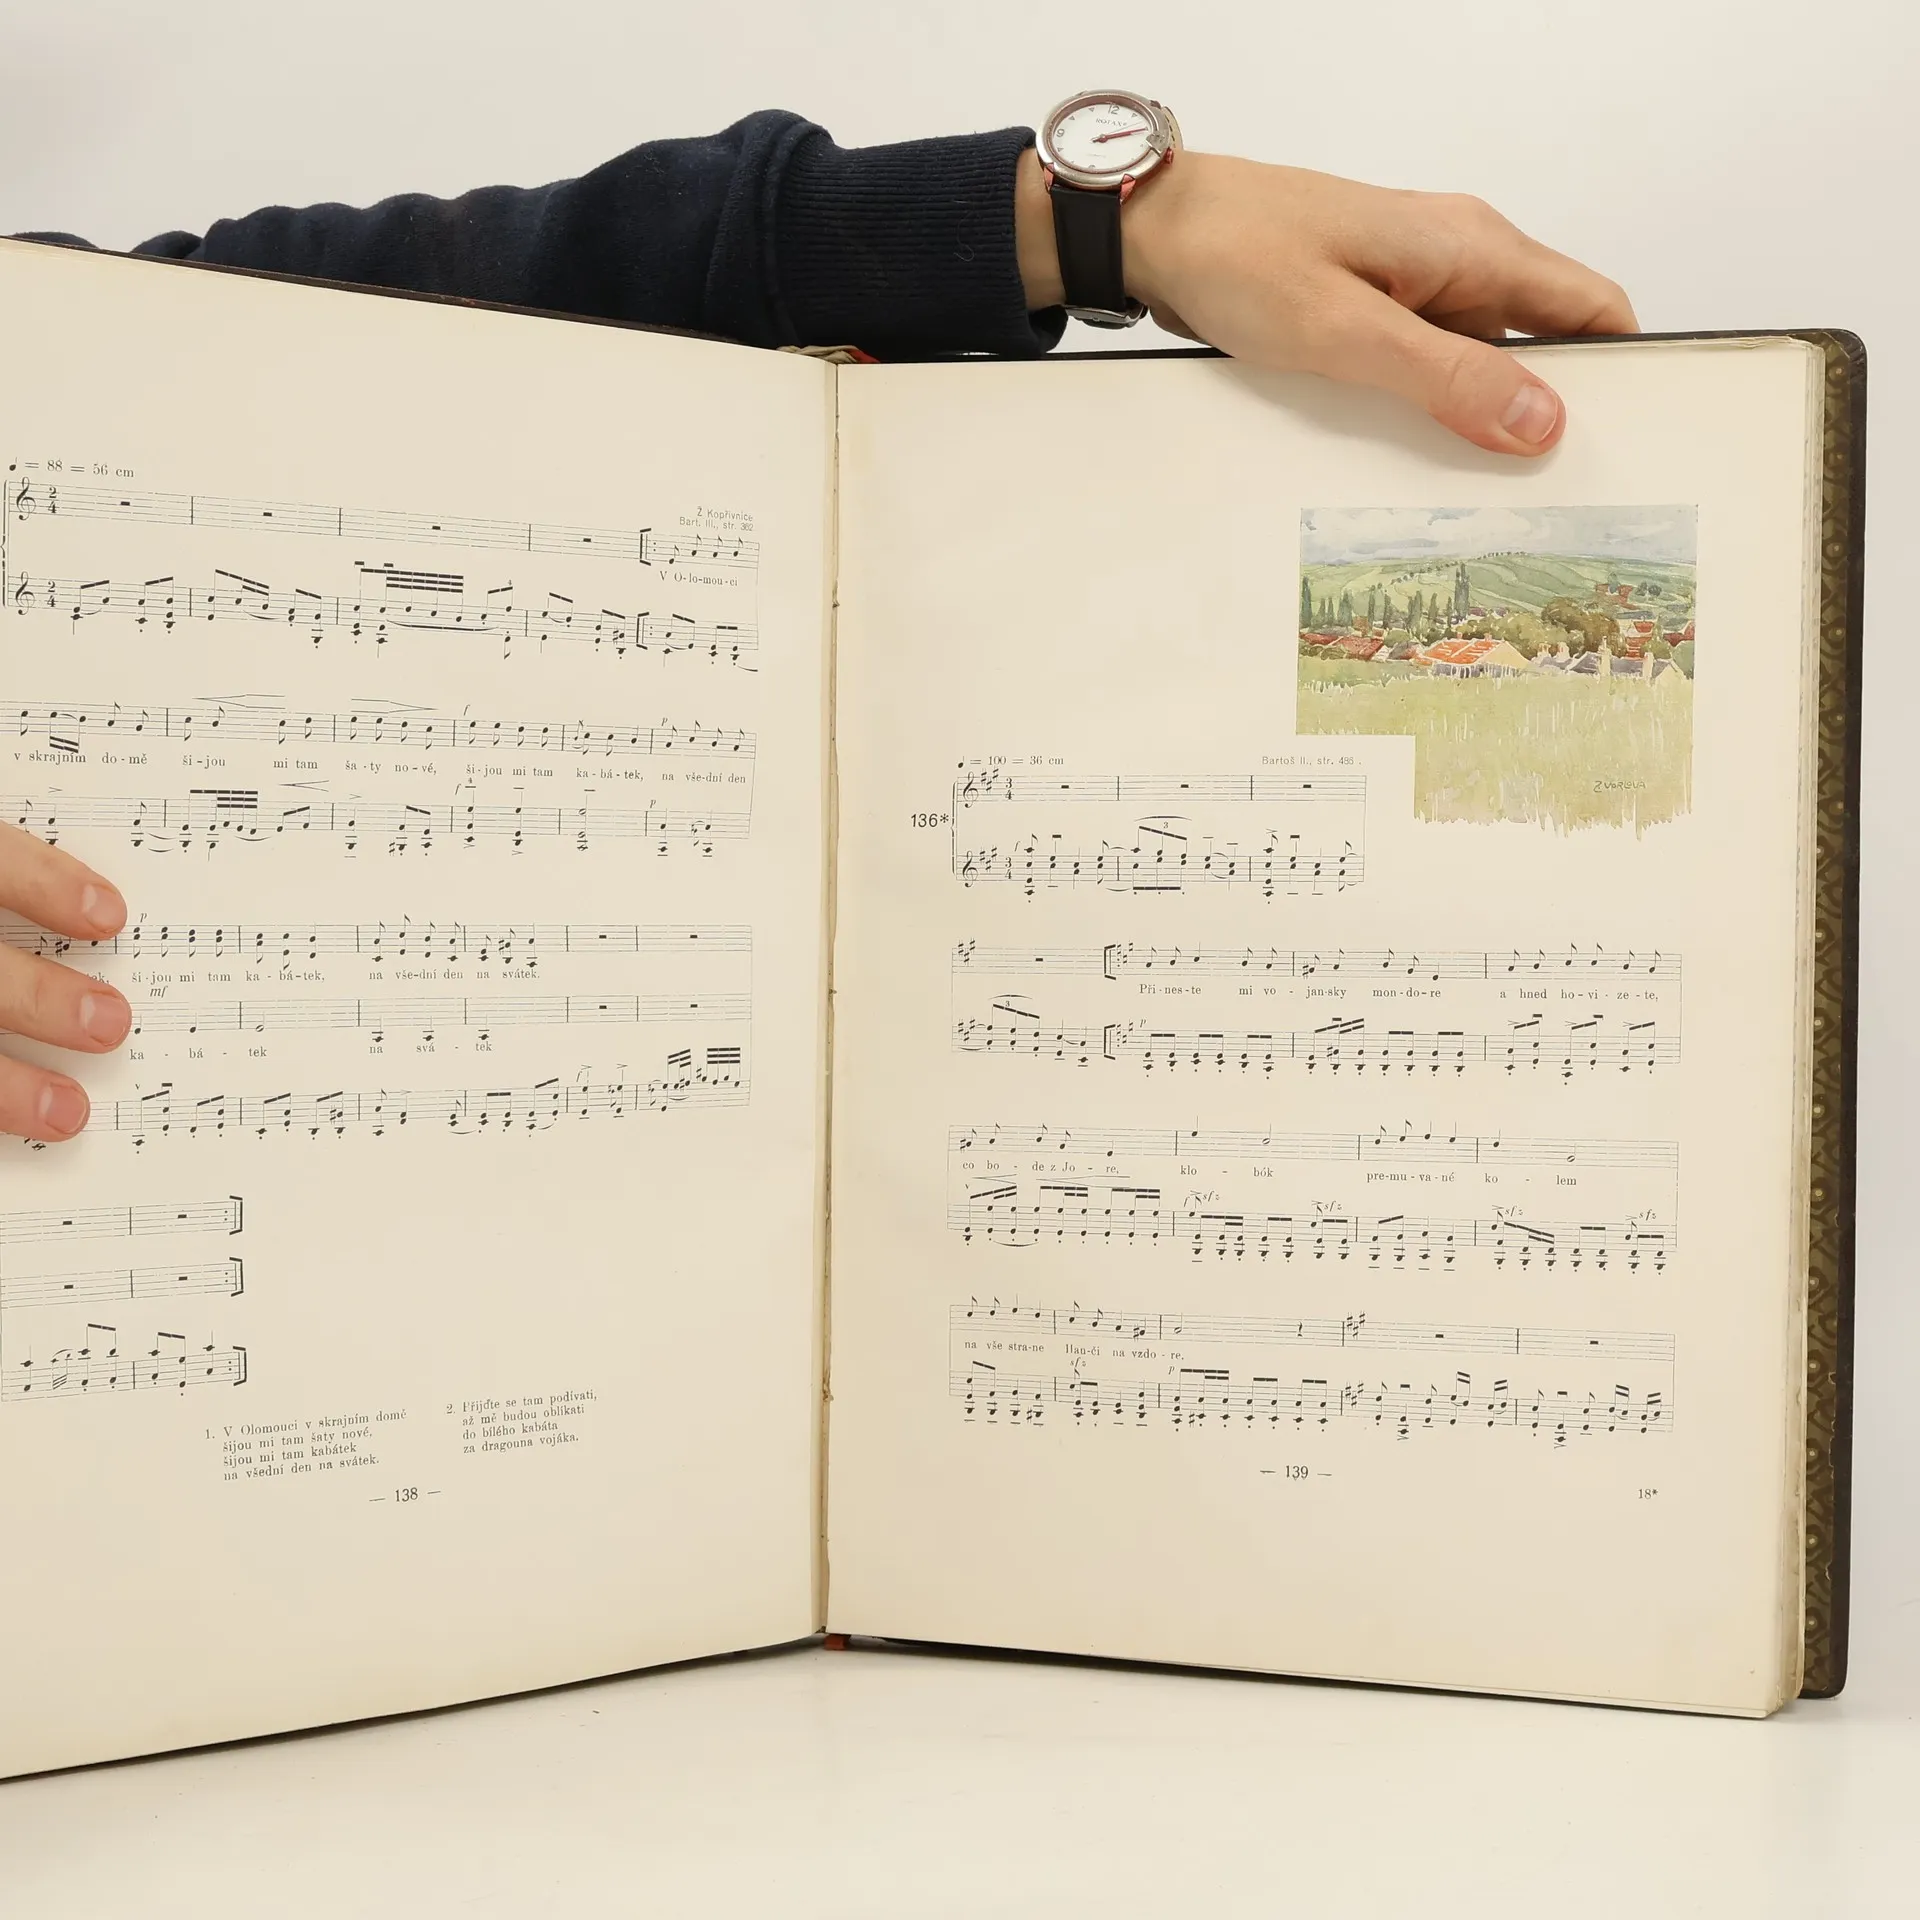 12
9
ROTAX
♩ = 88 = 56 cm
Z Kopřivnice
Bart. III., str. 362
V O-lo-mou-ci
v skrajním do-mě ši-jou mi tam ša-ty no-vé, ši-jou mi tam ka-bá-tek, na vše-dní den
f
p
f
p
p
ši-jou mi tam ka-bá-tek, na vše-dní den na svátek.
mf
ka - bá - tek na svá - tek
1. V Olomouci v skrajním domě
šijou mi tam šaty nové,
šijou mi tam kabátek
na všední den na svátek.
2. Přijďte se tam podívati,
až mě budou oblíkati
do bílého kabáta
za dragouna vojáka.
— 138 —
♩ = 100 = 36 cm
Bartoš II., str. 486.
136*
f
3
Při-nes-te mi vo-jan-sky mon-do-re a hned ho-vi-ze-te,
3
p
co bo - de z Jo - re, klo - bók pre-mu-va-né ko - lem
f sfz sfz sfz sfz
na vše stra-ne Han-či na vzdo-re.
sfz
p
— 139 —
18*